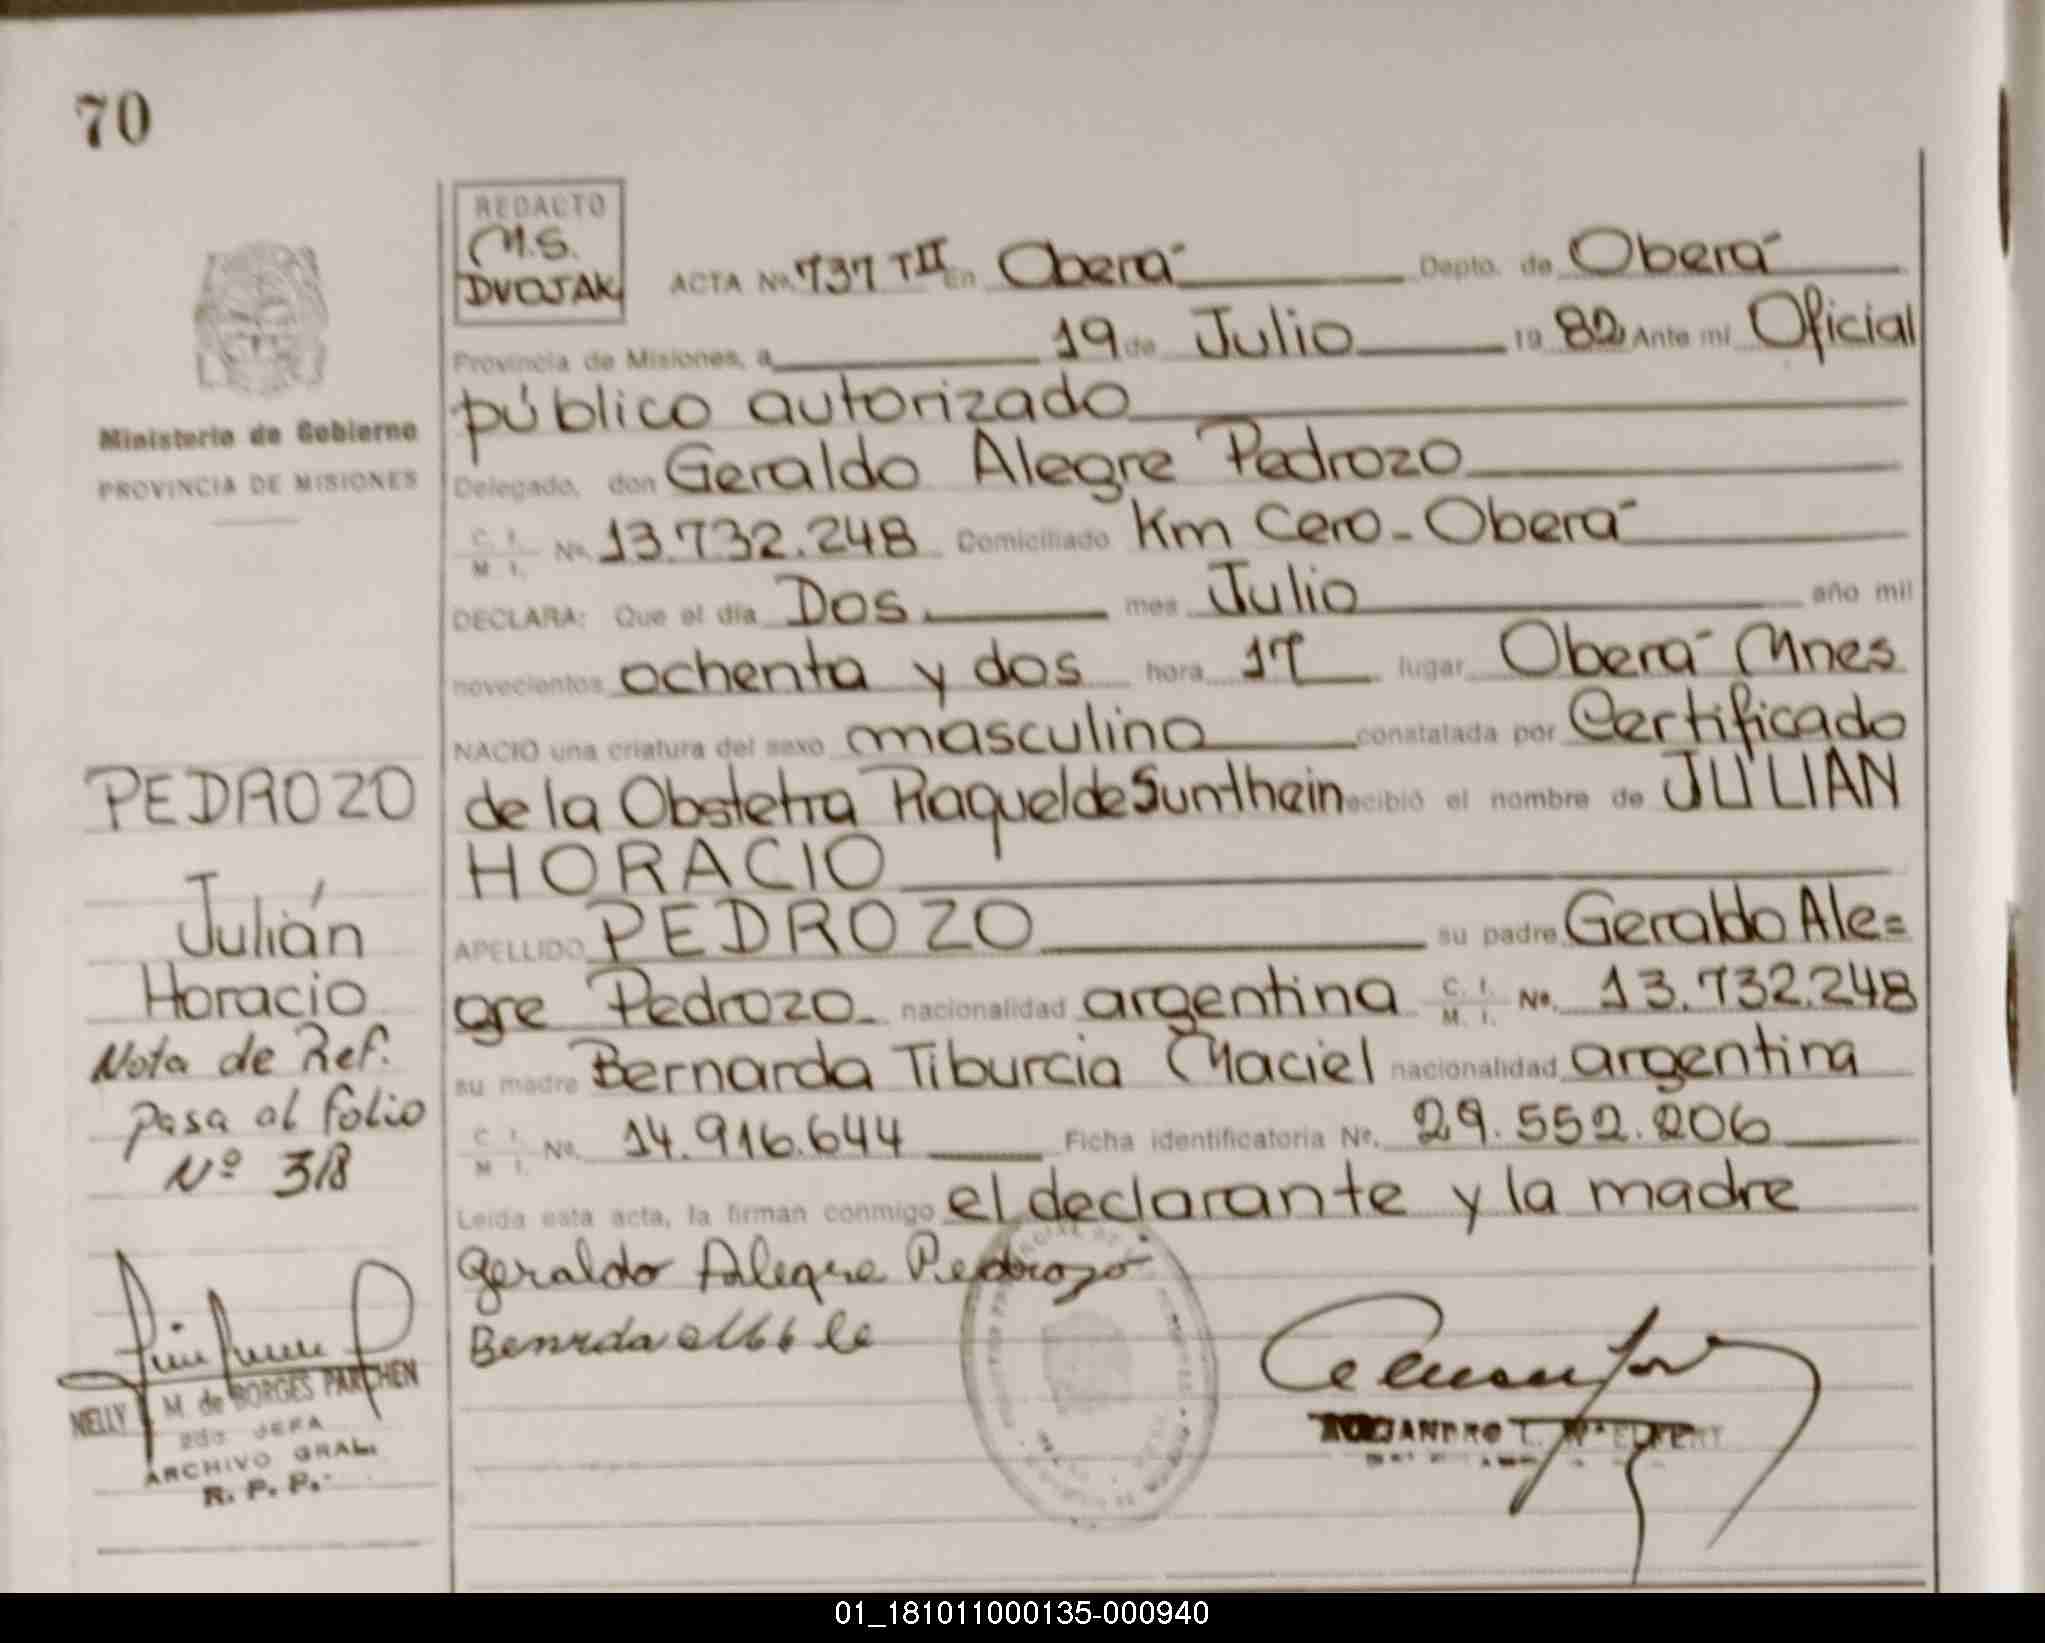 70
REDACTO
M.S.
DVOJAK
ACTA Nº 737 TII En Oberá Depto. de Oberá
Provincia de Misiones, a 19 de Julio 19 82 Ante mi Oficial
público autorizado
Delegado, don Geraldo Alegre Pedrozo
C. I.
M. I. Nº 13.732.248 Domiciliado Km Cero - Oberá
DECLARA: Que el día Dos mes Julio año mil
novecientos ochenta y dos hora 17 lugar Oberá Mnes
NACIO una criatura del sexo masculino constatada por Certificado
de la Obstetra Raquel de Sunthein recibió el nombre de JULIAN
HORACIO
APELLIDO PEDROZO su padre Geraldo Ale=
gre Pedrozo nacionalidad argentina C. I.
M. I. Nº 13.732.248
su madre Bernarda Tiburcia Maciel nacionalidad argentina
C. I.
M. I. Nº 14.916.644 Ficha identificatoria Nº 29.552.206
Leida esta acta, la firman conmigo el declarante y la madre
Geraldo Alegre Pedrozo
Ministerio de Gobierno
PROVINCIA DE MISIONES
PEDROZO
Julián
Horacio
Nota de Ref.
pasa al folio
Nº 318
NELLY M. de BORGES PARCHEN
2da JEFA
ARCHIVO GRAL.
R. P. P.
01_181011000135-000940